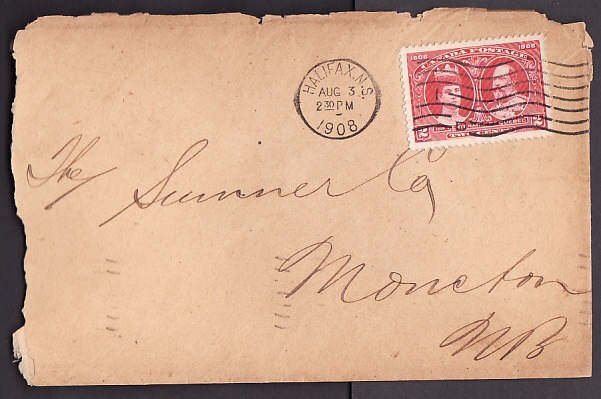 HALIFAX, N.S.
AUG 3
2 30 PM
1908
1608 1908
CANADA POSTAGE
2 2
The Sumner Co
Moncton
NB